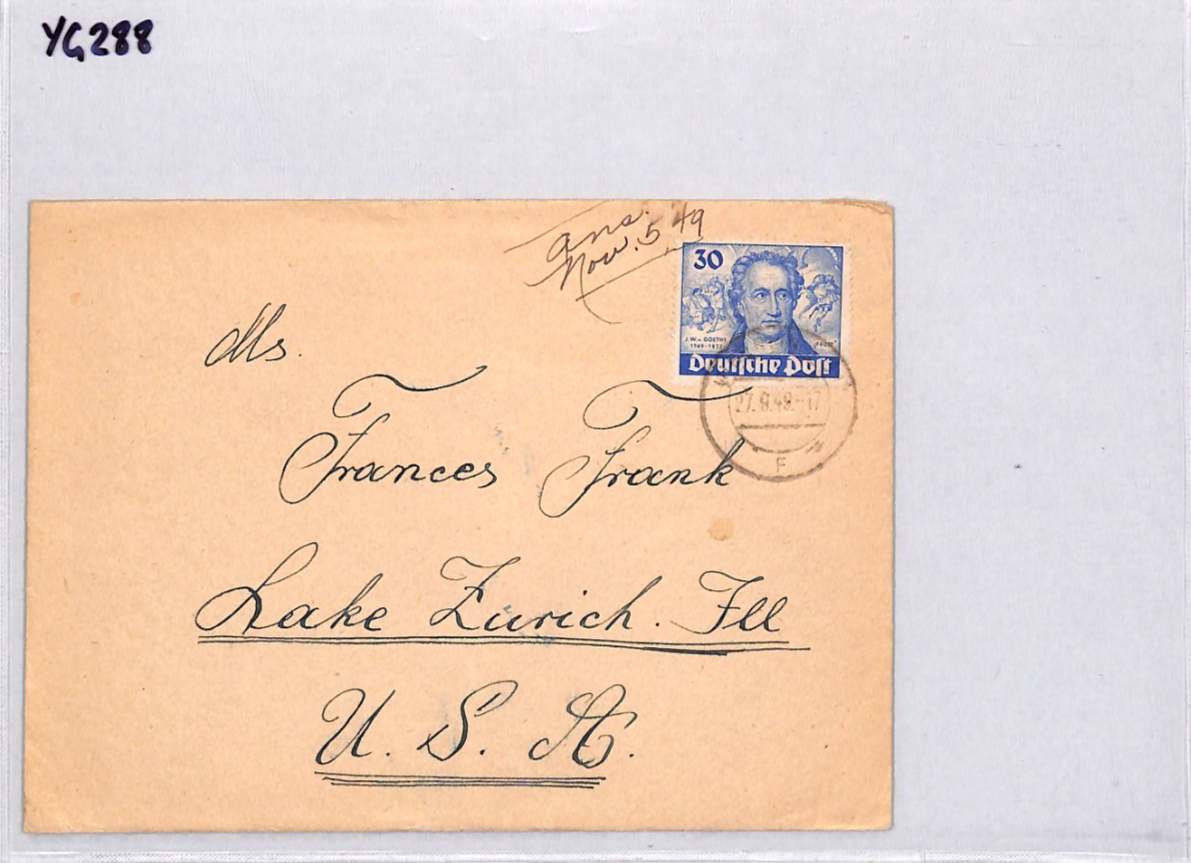 YG288
ans.
Nov. 5 '49
30
J.W.v. GOETHE
1749-1832
"FAUST"
Deutsche Post
27.9.49.-17
F
Ms.
Frances Frank
Lake Zurich. Ill
U. S. A.